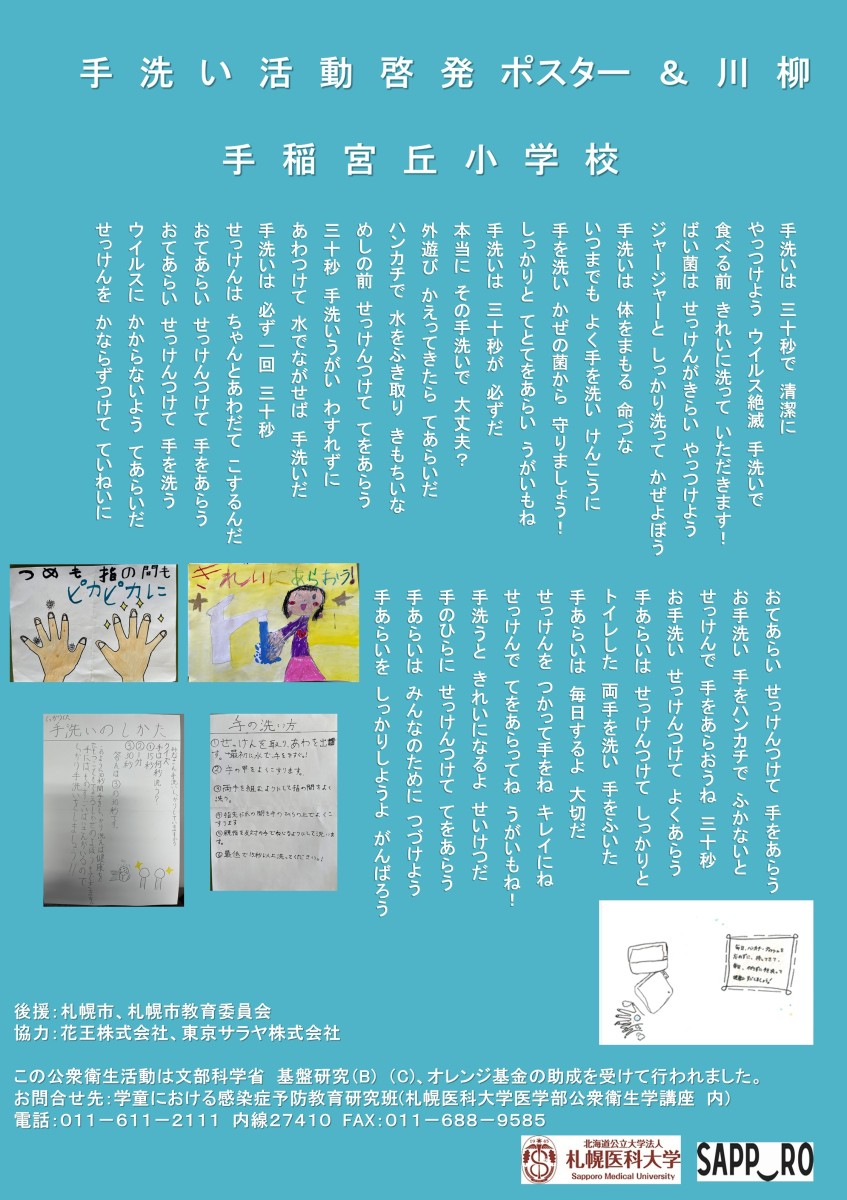 手洗い活動啓発ポスター & 川柳
手稲宮丘小学校
手洗いは 三十秒で 清潔に
やっつけよう ウイルス絶滅 手洗いで
食べる前 きれいに洗って いただきます!
ばい菌は せっけんがきらい やっつけよう
ジャージャーと しっかり洗って かぜよぼう
手洗いは 体をまもる 命づな
いつまでも よく手を洗い けんこうに
手を洗い かぜの菌から 守りましょう!
しっかりと てとてをあらい うがいもね
手洗いは 三十秒が 必ずだ
本当に その手洗いで 大丈夫?
外遊び かえってきたら てあらいだ
ハンカチで 水をふき取り きもちいな
めしの前 せっけんつけて てをあらう
三十秒 手洗いうがい わすれずに
あわつけて 水でながせば 手洗いだ
手洗いは 必ず一回 三十秒
せっけんは ちゃんとあわだて こするんだ
おてあらい せっけんつけて 手をあらう
おてあらい せっけんつけて 手を洗う
ウイルスに かからないよう てあらいだ
せっけんを かならずつけて ていねいに
おてあらい せっけんつけて 手をあらう
お手洗い 手をハンカチで ふかないと
せっけんで 手をあらおうね 三十秒
お手洗い せっけんつけて よくあらう
手あらいは せっけんつけて しっかりと
トイレした 両手を洗い 手をふいた
手あらいは 毎日するよ 大切だ
せっけんを つかって手をね キレイにね
せっけんで てをあらってね うがいもね!
手洗うと きれいになるよ せいけつだ
手のひらに せっけんつけて てをあらう
手あらいは みんなのために つづけよう
手あらいを しっかりしようよ がんばろう
つめも 指の間も
ピカピカに
きれいにあらおう!
手洗いのしかた
手の洗い方
①せっけんを取り、あわを出す。
②手の甲をよくこすります。
③両手を組むようにして指の間をよく
洗う。
後援:札幌市、札幌市教育委員会
協力:花王株式会社、東京サラヤ株式会社
この公衆衛生活動は文部科学省 基盤研究(B) (C)、オレンジ基金の助成を受けて行われました。
お問合せ先:学童における感染症予防教育研究班(札幌医科大学医学部公衆衛生学講座 内)
電話:011-611-2111 内線27410 FAX:011-688-9585
北海道公立大学法人
札幌医科大学
Sapporo Medical University
SAPP_RO